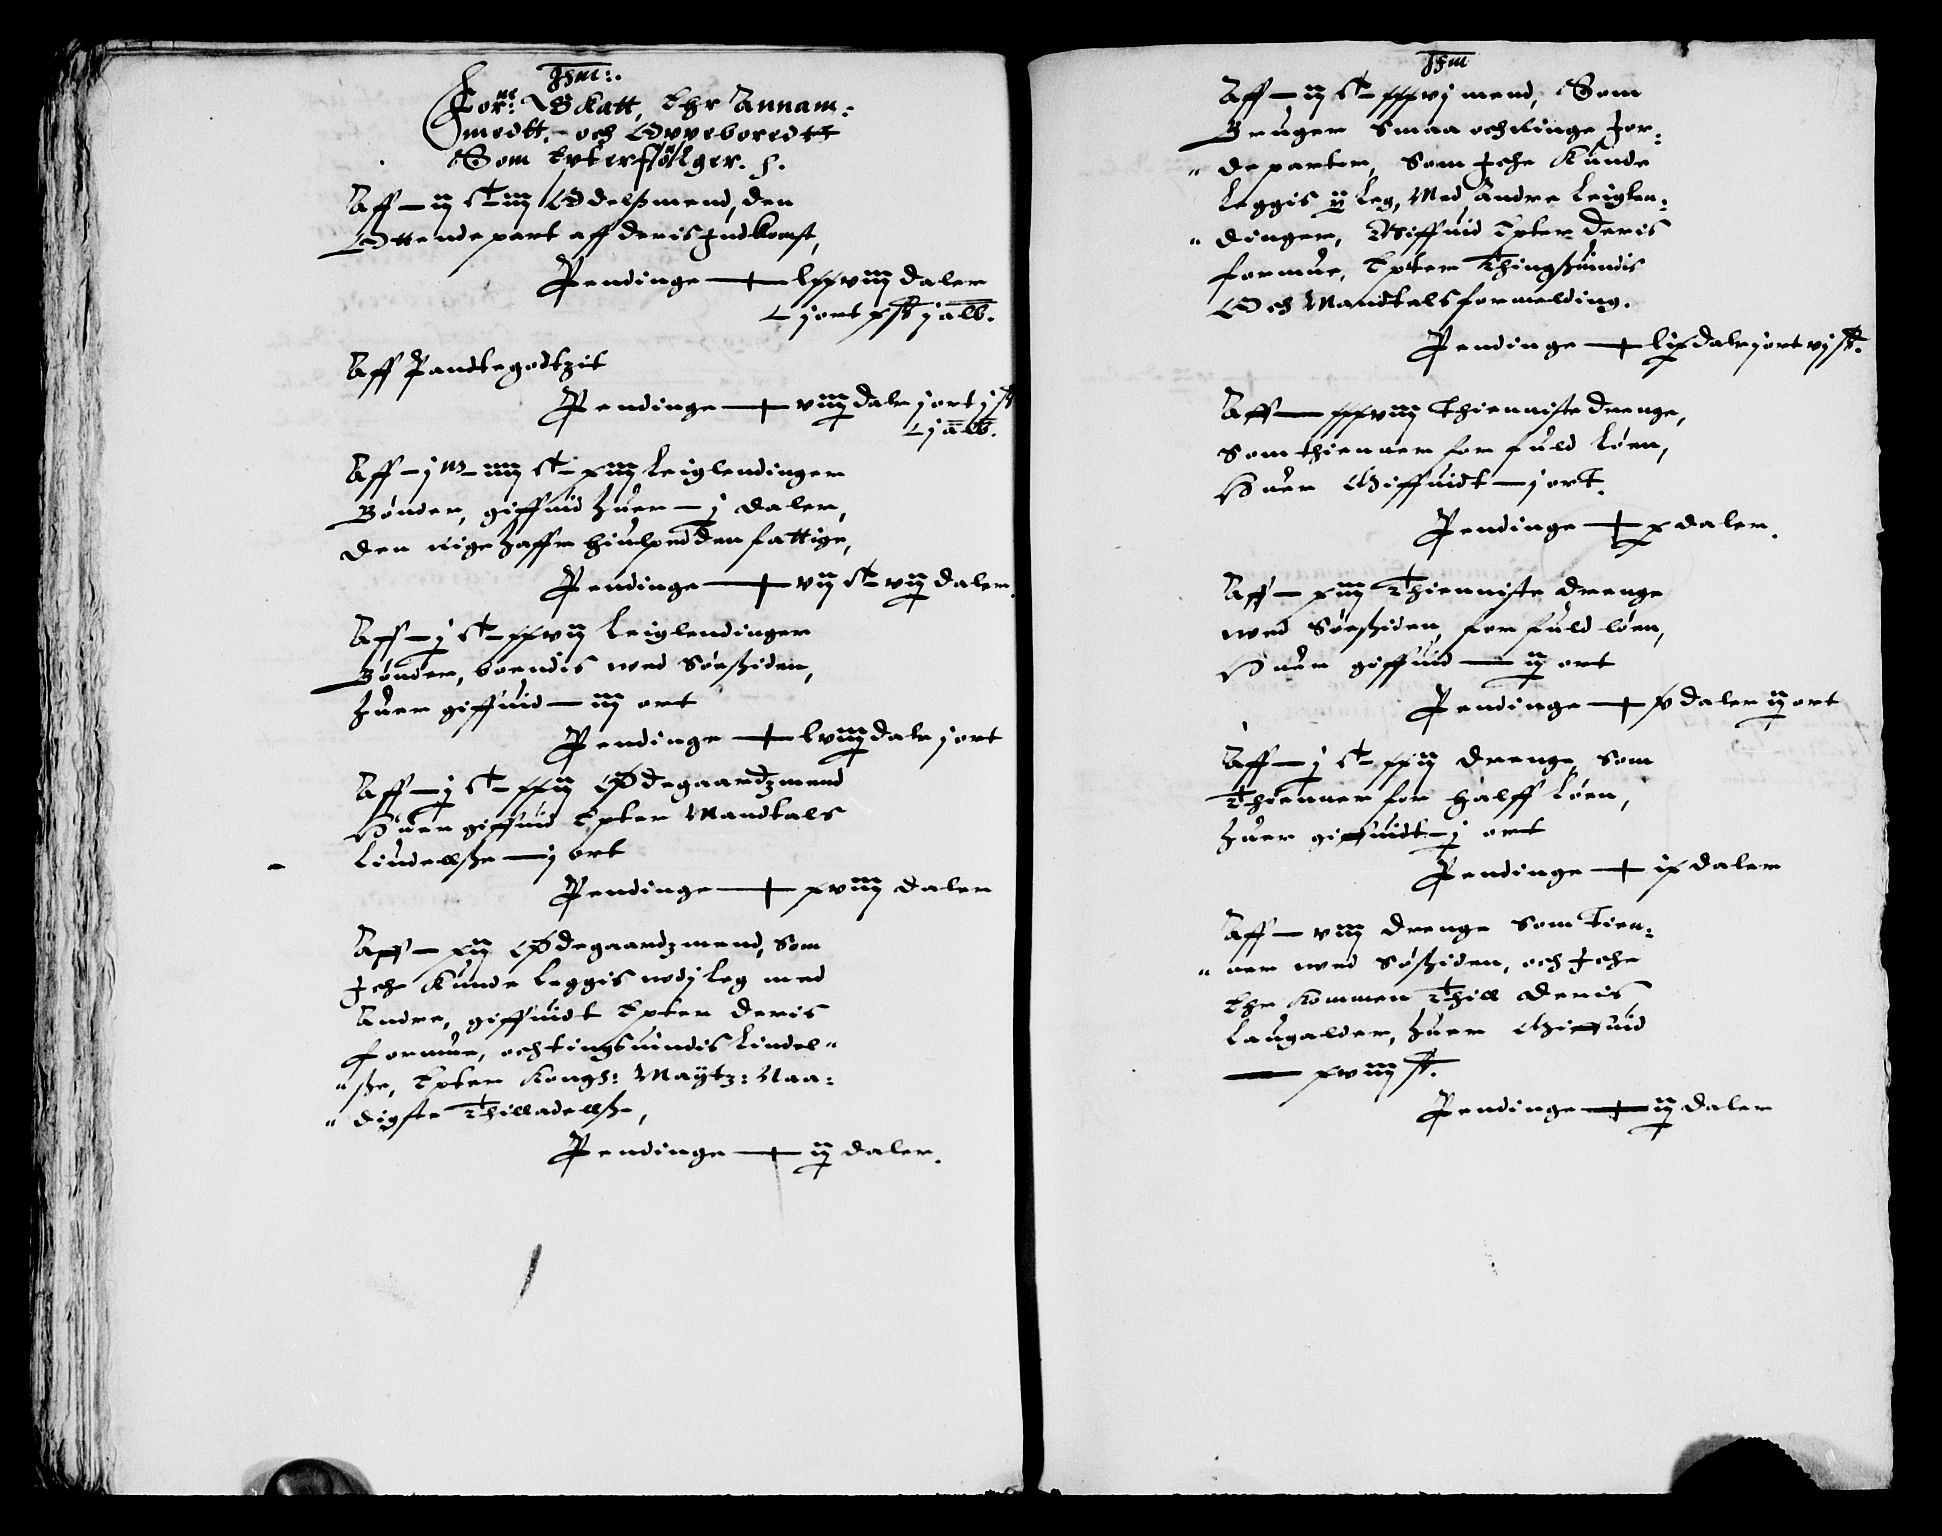 Jhm:.
Forne: Skatt, Ehr Annam:
medtt, och Oppeboredtt
Som Epterfølger. h.
Aff — ij Ct iij Odelsmend, den
Ottende part aff deris Jndkomst,
Pendinge — lxxviij daler
j ort x ß j alb.
Aff Pandtegodtzit
Pendinge — viij daler j ort j ß
j alb.
Aff — j m — iiij Ct — xiij Leiglendinger
Bønder, giffuid huer — j daler,
den Rige haffr hiulped den fattige,
Pendinge — vij Ct vij daler.
Aff — j Ct — xxvij Leiglendinger
Bønder, boendis wed Søesiden,
huer giffuid — iij ort
Pendinge — lxviij daler j ort
Aff — j Ct — xxij Ødegaardzmend
Huer giffuid Epter Mandtals
Liudellße — j ort
Pendinge — xviij daler
Aff — xij Ødegaardzmend, Som
Jche Kunde Leggis wdj Leg med
Andre, giffuidt Epter deris
formue, och tingsuindis Liudel"
"ße, Epter Kongh: Maÿtz: Naa:
"digste Thilladellße,
Pendinge — ij daler.
Jhm
Aff — ij Ct — xxxvj mend, Som
Bruger Smaa och Ringe Jor:
"de parter, Som Jche Kunde
Leggis ÿ Leg, Med Andre Leiglen:
"dinger, Giffuid Epter deris
formue, Epter Thingßuindis
Och Mandtals formelding.
Pendinge — lix daler j ort vj ß.
Aff — xxxviij Thienniste drenge,
Som thienner for fuld Løen,
Huer Giffuidt — j ort.
Pendinge — x daler.
Aff — xiiij Thienniste drenge
wed Søeßiden, for fuld løen,
Huer giffuid — ij ort
Pendinge — x daler ij ort
Aff — j Ct — xxij drenge, Som
Thienner for halff Løen,
huer giffuidt — j ort
Pendinge — ix daler
Aff — viij drenge Som Tien:
"ner wed Søßiden, och Jche
Ehr Kommen Thill deris
Laugalder, huer Giffuid
— xviij ß.
Pendinge — ij daler